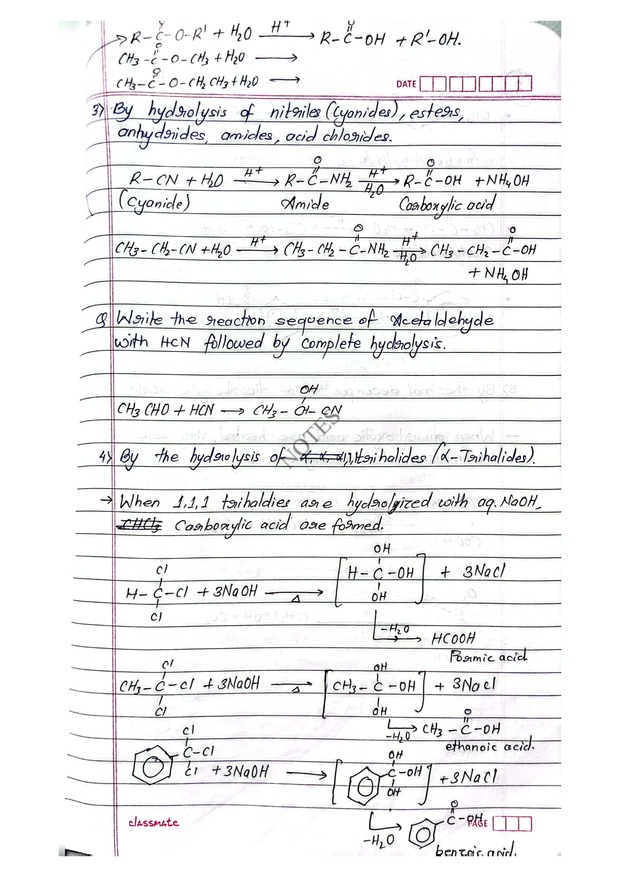 → R-C-O-R' + H₂O —H⁺→ R-C(=O)-OH + R'-OH.
CH₃-C(=O)-O-CH₃ + H₂O →
CH₃-C(=O)-O-CH₂CH₃ + H₂O →
DATE
3) By hydrolysis of nitriles (Cyanides), esters,
anhydrides, amides, acid chlorides.
R-CN + H₂O —H⁺→ R-C(=O)-NH₂ —H⁺/H₂O→ R-C(=O)-OH + NH₄OH
(Cyanide) Amide Carboxylic acid
CH₃-CH₂-CN + H₂O —H⁺→ CH₃-CH₂-C(=O)-NH₂ —H⁺/H₂O→ CH₃-CH₂-C(=O)-OH
+ NH₄OH
Q Write the reaction sequence of Acetaldehyde
with HCN followed by complete hydrolysis.
OH
CH₃CHO + HCN → CH₃-CH-CN
NOTES
4) By the hydrolysis of 1,1,1 trihalides (α-Trihalides).
→ When 1,1,1 trihaldies are hydrolyized with aq. NaOH,
CHCl₃ Carboxylic acid are formed.
Cl OH
H-C-Cl + 3NaOH —Δ→ [H-C-OH] + 3NaCl
Cl OH
-H₂O → HCOOH
Formic acid
Cl OH
CH₃-C-Cl + 3NaOH —Δ→ [CH₃-C-OH] + 3NaCl
Cl OH
-H₂O → CH₃-C(=O)-OH
ethanoic acid.
Cl OH
C-Cl C-OH
Cl + 3NaOH → [OH] + 3NaCl
classmate
-H₂O → C(=O)-OH
PAGE
benzoic acid.